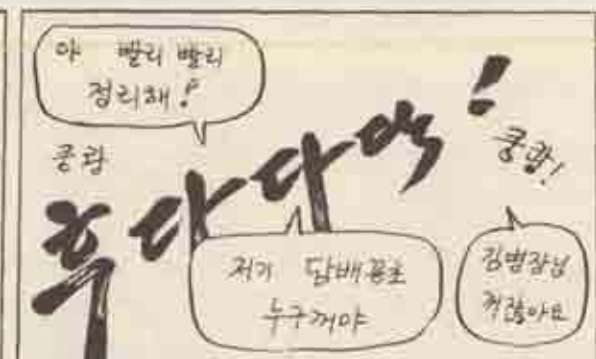 야 빨리 빨리
정리해!
쿵쾅
후다다닥!
쿵쾅!
저기 담배꽁초
누구꺼야
김병장님
꺼잖아요